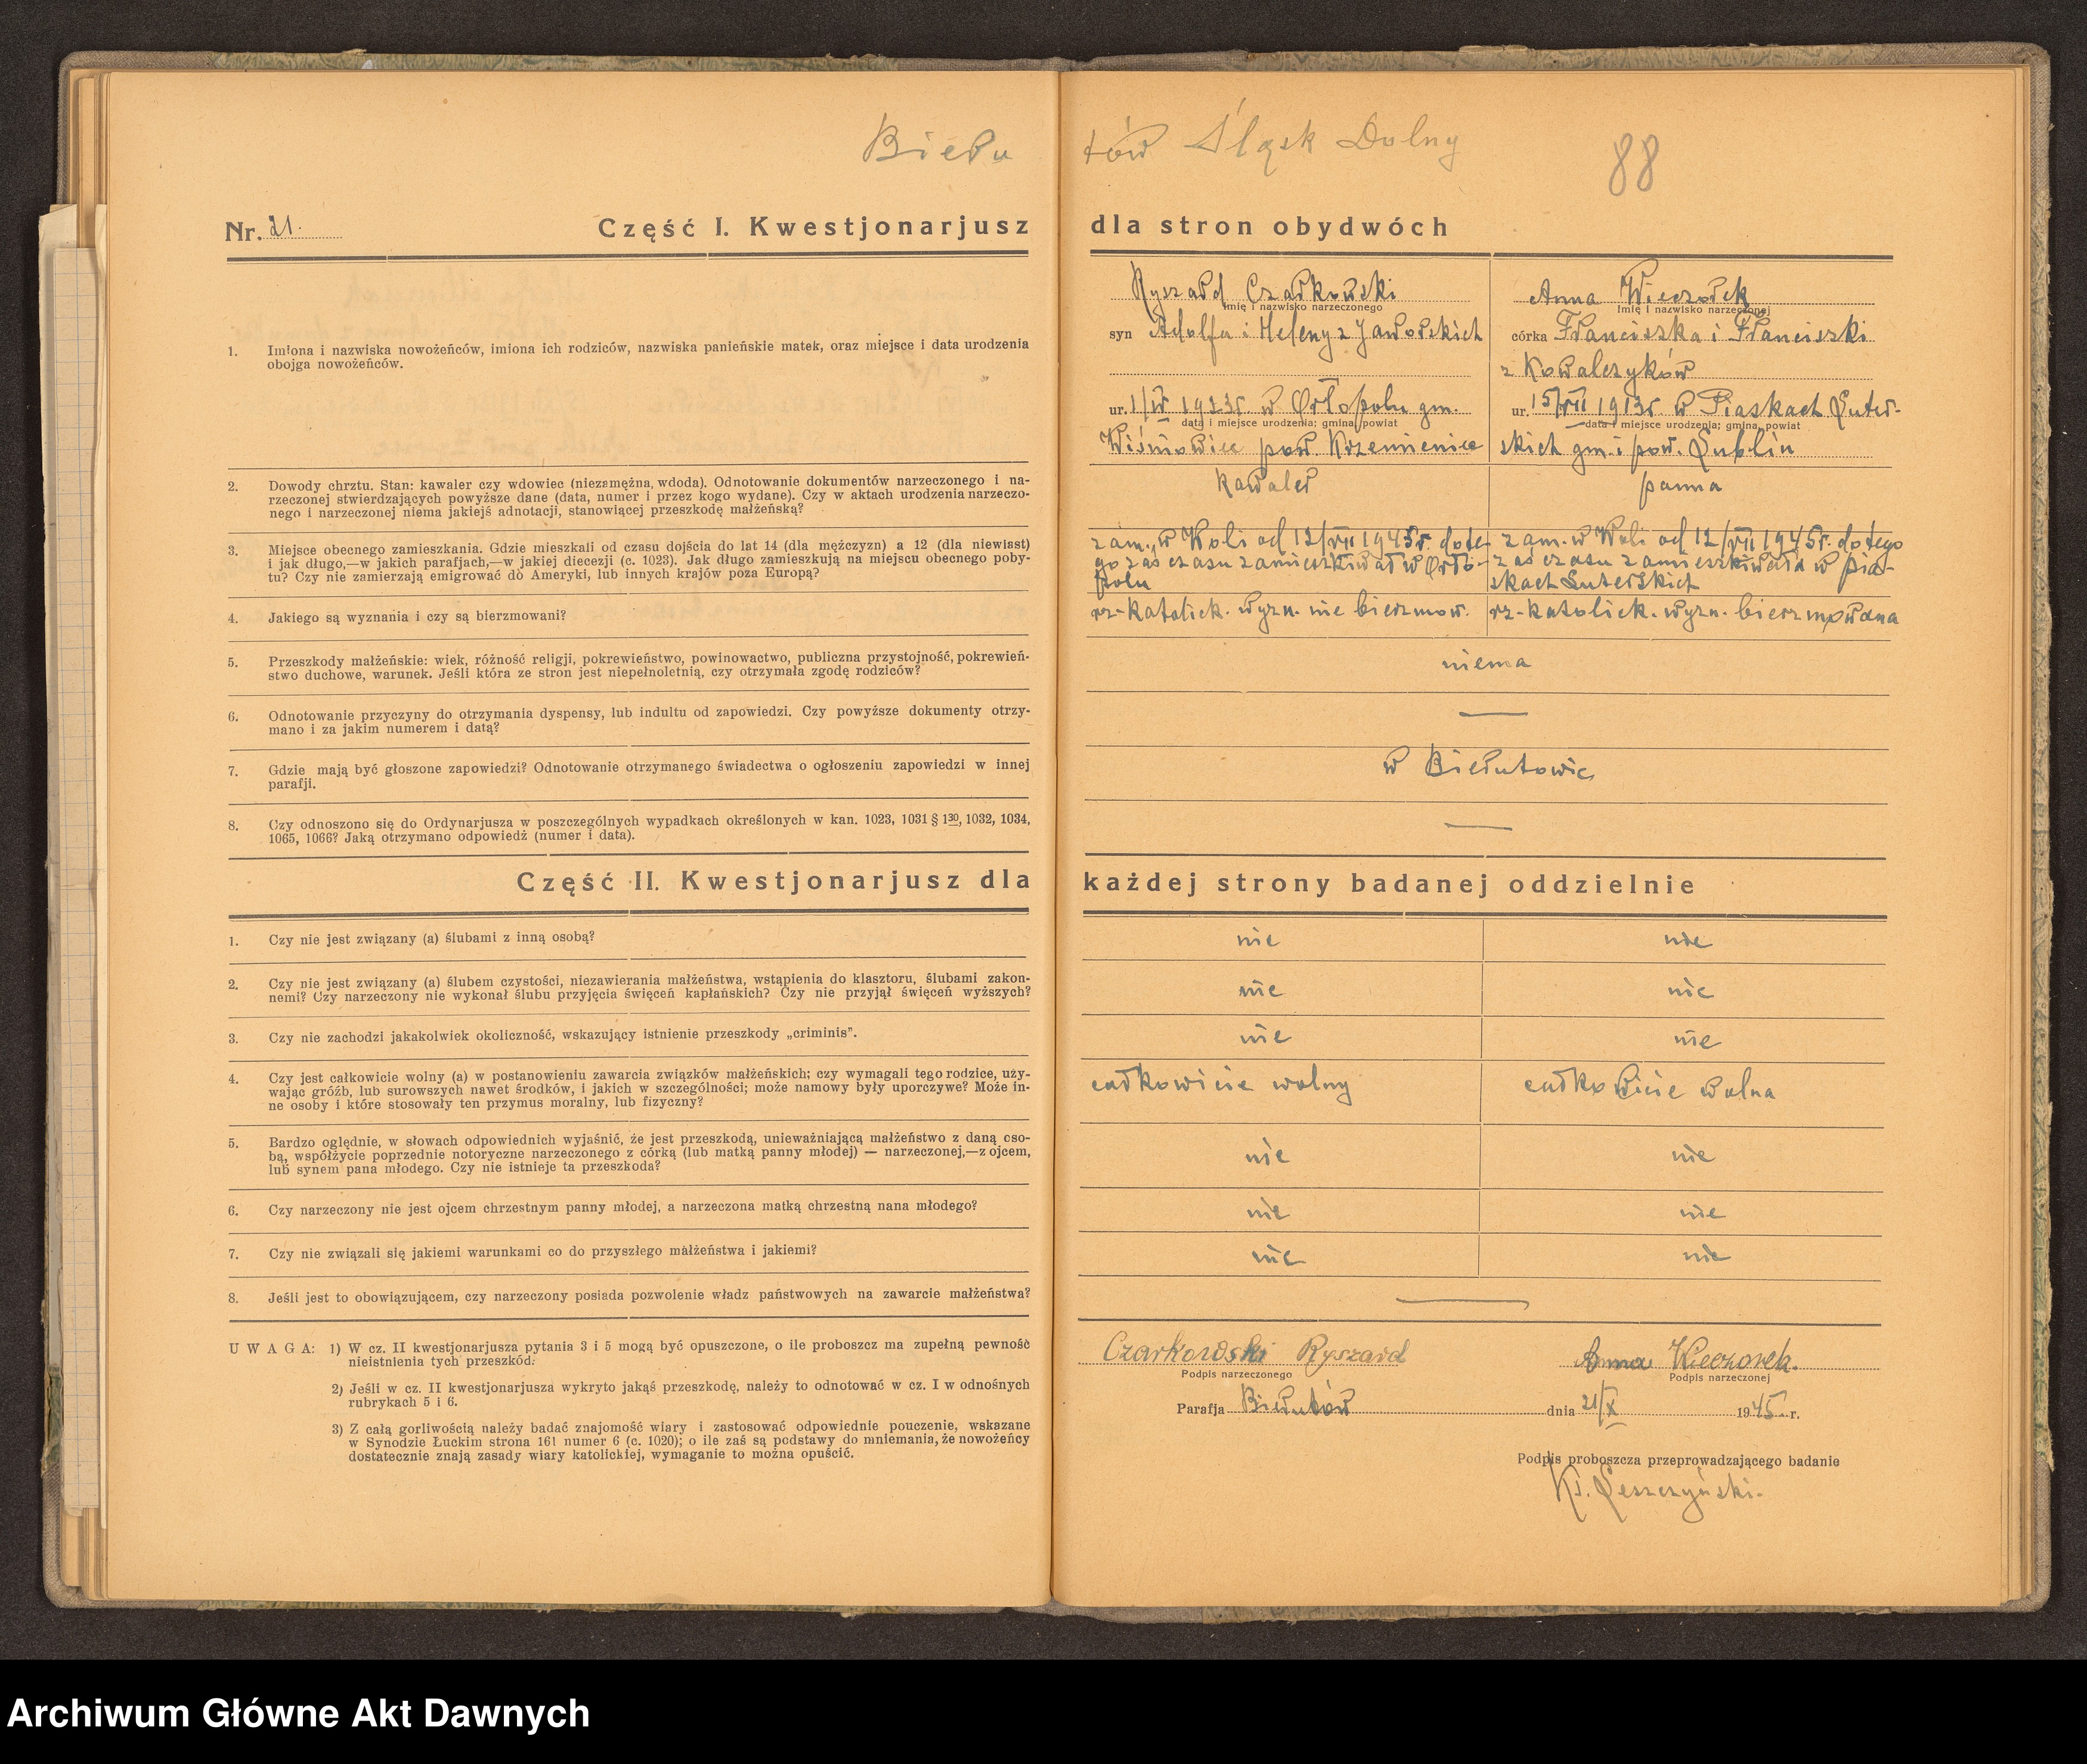 Bieru
tów Śląsk Dolny
88
Nr. 21.
Część I. Kwestjonarjusz
dla stron obydwóch
1. Imiona i nazwiska nowożeńców, imiona ich rodziców, nazwiska panieńskie matek, oraz miejsce i data urodzenia
obojga nowożeńców.
Ryszard Czarkowski
Imię i nazwisko narzeczonego
syn Adolfa i Heleny z Jaworskich
ur. 1/IV 1923r w Orłopolu gm.
data i miejsce urodzenia; gmina, powiat
Wiśniowiec pow. Krzemieniec
Anna Wieczorek
Imię i nazwisko narzeczonej
córka Franciszka i Franciszki
z Kowalczyków
ur. 15/VII 1913r w Piaskach Luter-
data i miejsce urodzenia; gmina, powiat
skich gm. i pow. Lublin
2. Dowody chrztu. Stan: kawaler czy wdowiec (niezamężna, wdoda). Odnotowanie dokumentów narzeczonego i na-
rzeczonej stwierdzających powyższe dane (data, numer i przez kogo wydane). Czy w aktach urodzenia narzeczo-
nego i narzeczonej niema jakiejś adnotacji, stanowiącej przeszkodę małżeńską?
kawaler
panna
3. Miejsce obecnego zamieszkania. Gdzie mieszkali od czasu dojścia do lat 14 (dla mężczyzn) a 12 (dla niewiast)
i jak długo,—w jakich parafjach,—w jakiej diecezji (c. 1023). Jak długo zamieszkują na miejscu obecnego poby-
tu? Czy nie zamierzają emigrować do Ameryki, lub innych krajów poza Europą?
zam. w Woli od 12/VII 1945r. dote-
go zaś czasu zamieszkiwał w Orło-
polu
zam. w Woli od 12/VII 1945r. do tego
zaś czasu zamieszkiwała w Pia-
skach Luterskich
4. Jakiego są wyznania i czy są bierzmowani?
rz-katolick. wyzn. nie bierzmow.
rz-katolick. wyzn. bierzmowana
5. Przeszkody małżeńskie: wiek, różność religji, pokrewieństwo, powinowactwo, publiczna przystojność, pokrewień-
stwo duchowe, warunek. Jeśli która ze stron jest niepełnoletnią, czy otrzymała zgodę rodziców?
niema
6. Odnotowanie przyczyny do otrzymania dyspensy, lub indultu od zapowiedzi. Czy powyższe dokumenty otrzy-
mano i za jakim numerem i datą?
7. Gdzie mają być głoszone zapowiedzi? Odnotowanie otrzymanego świadectwa o ogłoszeniu zapowiedzi w innej
parafji.
w Bierutowie
8. Czy odnoszono się do Ordynarjusza w poszczególnych wypadkach określonych w kan. 1023, 1031 § 1 30, 1032, 1034,
1065, 1066? Jaką otrzymano odpowiedź (numer i data).
Część II. Kwestjonarjusz dla
każdej strony badanej oddzielnie
1. Czy nie jest związany (a) ślubami z inną osobą?
nie
nie
2. Czy nie jest związany (a) ślubem czystości, niezawierania małżeństwa, wstąpienia do klasztoru, ślubami zakon-
nemi? Czy narzeczony nie wykonał ślubu przyjęcia święceń kapłańskich? Czy nie przyjął święceń wyższych?
nie
nie
3. Czy nie zachodzi jakakolwiek okoliczność, wskazujący istnienie przeszkody „criminis".
nie
nie
4. Czy jest całkowicie wolny (a) w postanowieniu zawarcia związków małżeńskich; czy wymagali tego rodzice, uży-
wając gróźb, lub surowszych nawet środków, i jakich w szczególności; może namowy były uporczywe? Może in-
ne osoby i które stosowały ten przymus moralny, lub fizyczny?
całkowicie wolny
całkowicie wolna
5. Bardzo oględnie, w słowach odpowiednich wyjaśnić, że jest przeszkodą, unieważniającą małżeństwo z daną oso-
bą, współżycie poprzednie notoryczne narzeczonego z córką (lub matką panny młodej) — narzeczonej,—z ojcem,
lub synem pana młodego. Czy nie istnieje ta przeszkoda?
nie
nie
6. Czy narzeczony nie jest ojcem chrzestnym panny młodej, a narzeczona matką chrzestną nana młodego?
nie
nie
7. Czy nie związali się jakiemi warunkami co do przyszłego małżeństwa i jakiemi?
nie
nie
8. Jeśli jest to obowiązującem, czy narzeczony posiada pozwolenie władz państwowych na zawarcie małżeństwa?
UWAGA: 1) W cz. II kwestjonarjusza pytania 3 i 5 mogą być opuszczone, o ile proboszcz ma zupełną pewność
nieistnienia tych przeszkód.
2) Jeśli w cz. II kwestjonarjusza wykryto jakąś przeszkodę, należy to odnotować w cz. I w odnośnych
rubrykach 5 i 6.
3) Z całą gorliwością należy badać znajomość wiary i zastosować odpowiednie pouczenie, wskazane
w Synodzie Łuckim strona 161 numer 6 (c. 1020); o ile zaś są podstawy do mniemania, że nowożeńcy
dostatecznie znają zasady wiary katolickiej, wymaganie to można opuścić.
Czarkowski Ryszard
Podpis narzeczonego
Anna Wieczorek.
Podpis narzeczonej
Parafja Bierutów dnia 21/X 1945 r.
Podpis proboszcza przeprowadzającego badanie
Ks. Leszczyński.
Archiwum Główne Akt Dawnych